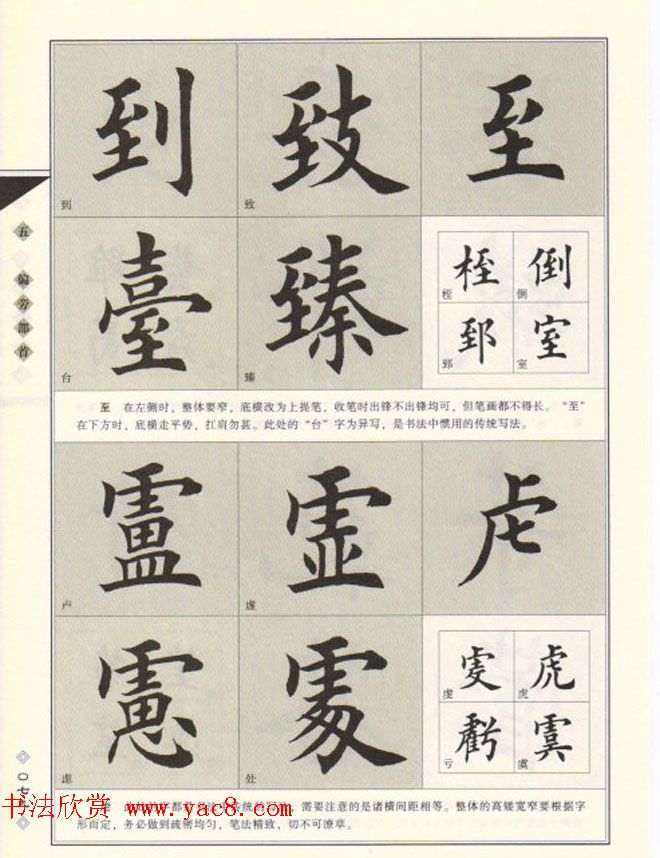 五 偏旁部首
到 致 至
到 致
臺 臻
台 臻
桎 倒
桎 倒
郅 室
郅 室
至 在左侧时，整体要窄，底横改为上提笔，收笔时出锋不出锋均可，但笔画都不得长。“至”
在下方时，底横走平势，扛肩勿甚。此处的“台”字为异写，是书法中惯用的传统写法。
盧 虛 虍
卢 虚
慮 處
虑 处
虔 虎
虔 虎
虧 虞
亏 虞
需要注意的是诸横间距相等。整体的高矮宽窄要根据字
形而定，务必做到疏密均匀，笔法精致，切不可潦草。
书法欣赏
www.yac8.com